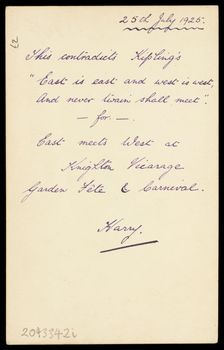 25th July 1925.
This contradicts Kipling's
"East is east and west is west,
And never twain shall meet".
— for —.
East meets West at
Knighton Vicarage
Garden Fête & Carnival.
Harry.
2043342i